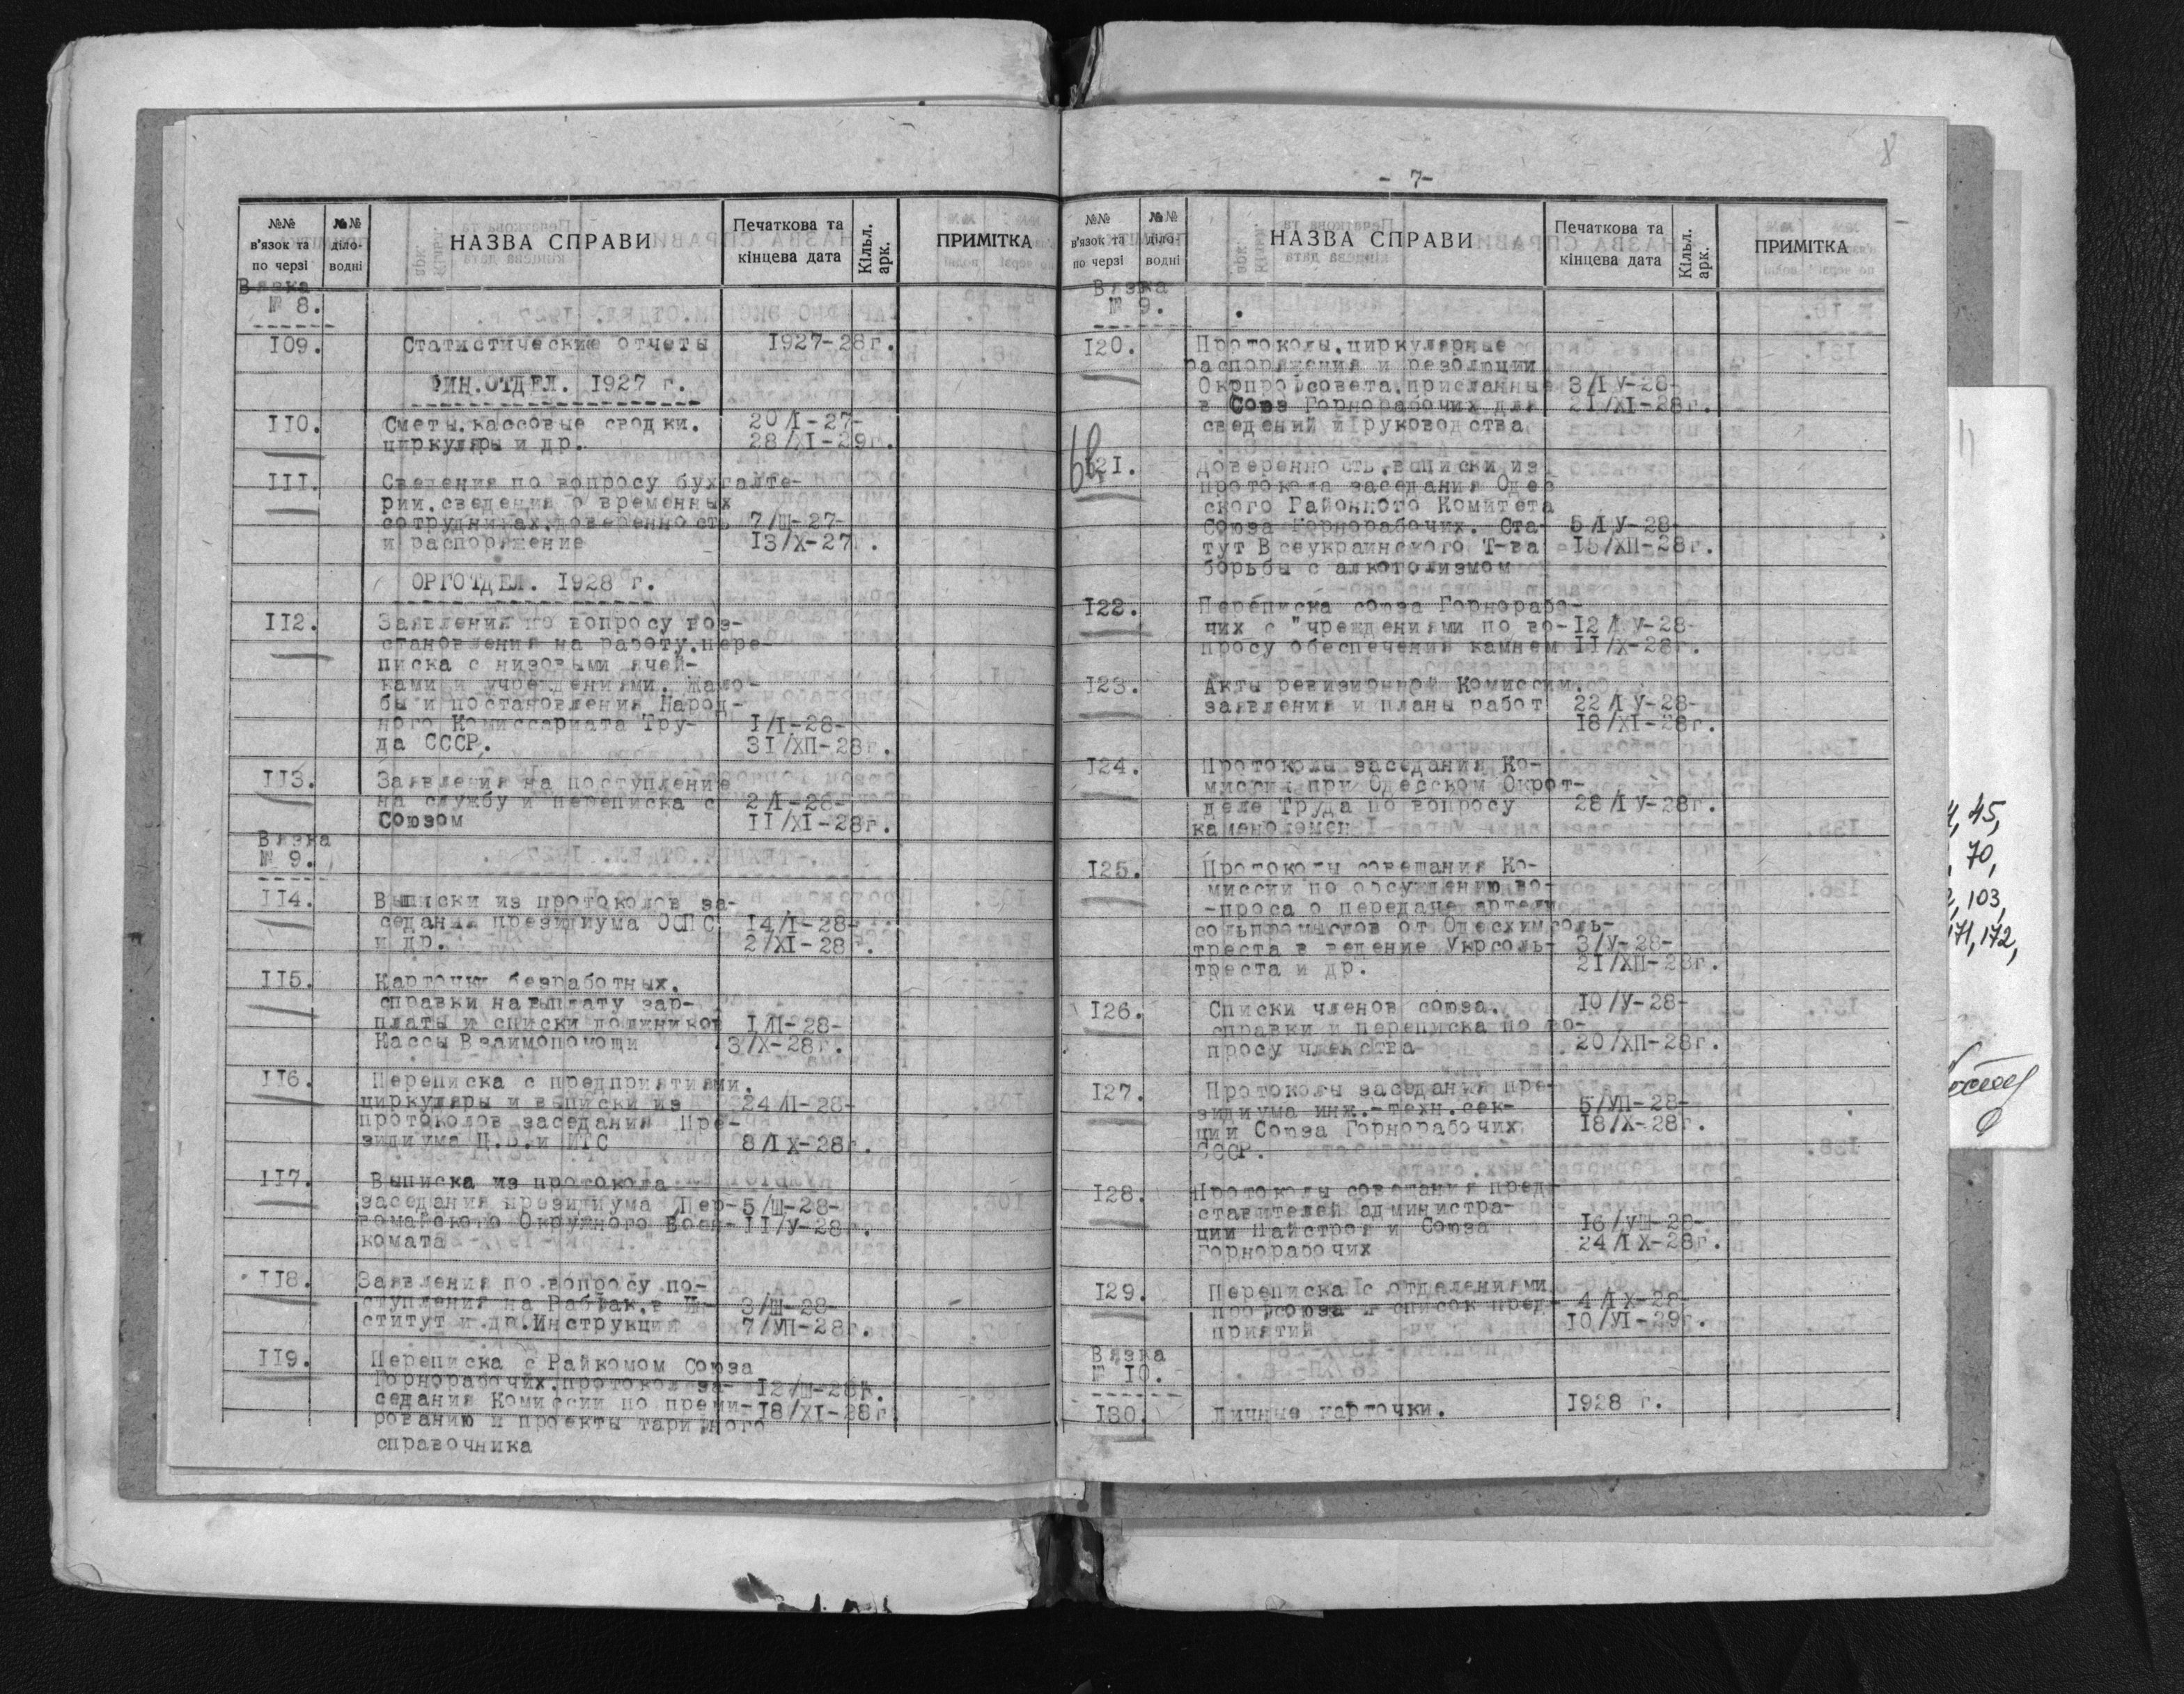 №№ в'язок та по черзі
№№ діло-водні
НАЗВА СПРАВИ
Печаткова та кінцева дата
Кільк. арк.
ПРИМІТКА
Вязка
№ 8.
109. Статистические отчеты 1927-28г.
ФИН.ОТДЕЛ. 1927 г.
110. Сметы,кассовые сводки, 20/I-27-
циркуляры и др. 28/XI-29г.
111. Сведения по вопросу бухгалте-
рии,сведения о временных
сотрудниках,доверенность 7/Ш-27-
и распоряжение 13/X-27г.
ОРГОТДЕЛ. 1928 г.
112. Заявления по вопросу вос-
становления на работу,пере-
писка с низовыми ячей-
ками и учреждениями. Жало-
бы и постановления Народ-
ного Комиссариата Тру- I/I-28-
да СССР. 31/ХП-28г.
113. Заявления на поступление
на службу и переписка с 2/I-28-
Союзом II/XI-28г.
Вязка
№ 9.
114. Выписки из протоколов за-
седания президиума ОСПС 14/I-28-
и др. 2/XI-28г.
115. Карточки безработных,
справки на выплату зар-
платы и списки должников I/П-28-
Кассы Взаимопомощи 3/X-28г.
116. Переписка с предприятиями,
циркуляры и выписки из 24/П-28-
протоколов заседания Пре-
зидиума Ц.Б.и ИТС 8/IX-28г.
117. Выписка из протокола
заседания президиума Пер- 5/Ш-28-
вомайского Окружного Воен- II/У-28г.
комата
118. Заявления по вопросу по-
ступления на Рабфак,в Ин- 3/Ш-28-
ститут и др.Инструкции 7/УП-28г.
119. Переписка с Райкомом Союза
Горнорабочих,протокол за- 12/Ш-28г.
седания Комиссии по преми- 18/XI-28г.
рованию и проекты тарифного
справочника
- 7-
8
№№ в'язок та по черзі
№№ діло-водні
НАЗВА СПРАВИ
Печаткова та кінцева дата
Кільк. арк.
ПРИМІТКА
Вязка
№ 9.
120. Протоколы,циркулярные
распоряжения и резолюции
Окрпрофсовета,присланные 3/IУ-28-
в Союз Горнорабочих для 21/XI-28г.
сведений и руководства
121. Доверенность,выписки из
протокола заседания Одес
ского Районного Комитета
Союза Горнорабочих. Ста- 5/IУ-28-
тут Всеукраинского Т-ва 15/ХП-28г.
борьбы с алкоголизмом
122. Переписка союза Горнорабо-
чих с "чреждениями по во- 12/IУ-28-
просу обеспечения камнем II/X-28г.
123. Акты ревизионной Комиссии,
заявления и планы работ 22/IУ-28-
18/XI-28г.
124. Протоколы заседания Ко-
миссии при Одесском Окрот-
деле Труда по вопросу 28/IУ-28г.
каменоломен
125. Протоколы совещания Ко-
миссии по обсуждению во-
-проса о передаче артели
сольпромыслов от Одесхимсоль-
треста в ведение Укрсоль- 3/У-28-
треста и др. 21/ХП-28г.
126. Списки членов союза, 10/У-28-
справки и переписка по во-
просу членства 20/ХП-28г.
127. Протоколы заседания пре-
зидиума инж.-техн.сек- 5/УП-28-
ции Союза Горнорабочих 18/X-28г.
СССР.
128. Протоколы совещания пред-
ставителей администра-
ции Пайстроя и Союза 16/УШ-28-
Горнорабочих 24/IX-28г.
129. Переписка с отделениями
профсоюза и список пред- 4/IX-28-
приятий 10/УI-29г.
Вязка
№ 10.
130. Личные карточки. 1928 г.
45,
70,
103,
171, 172,